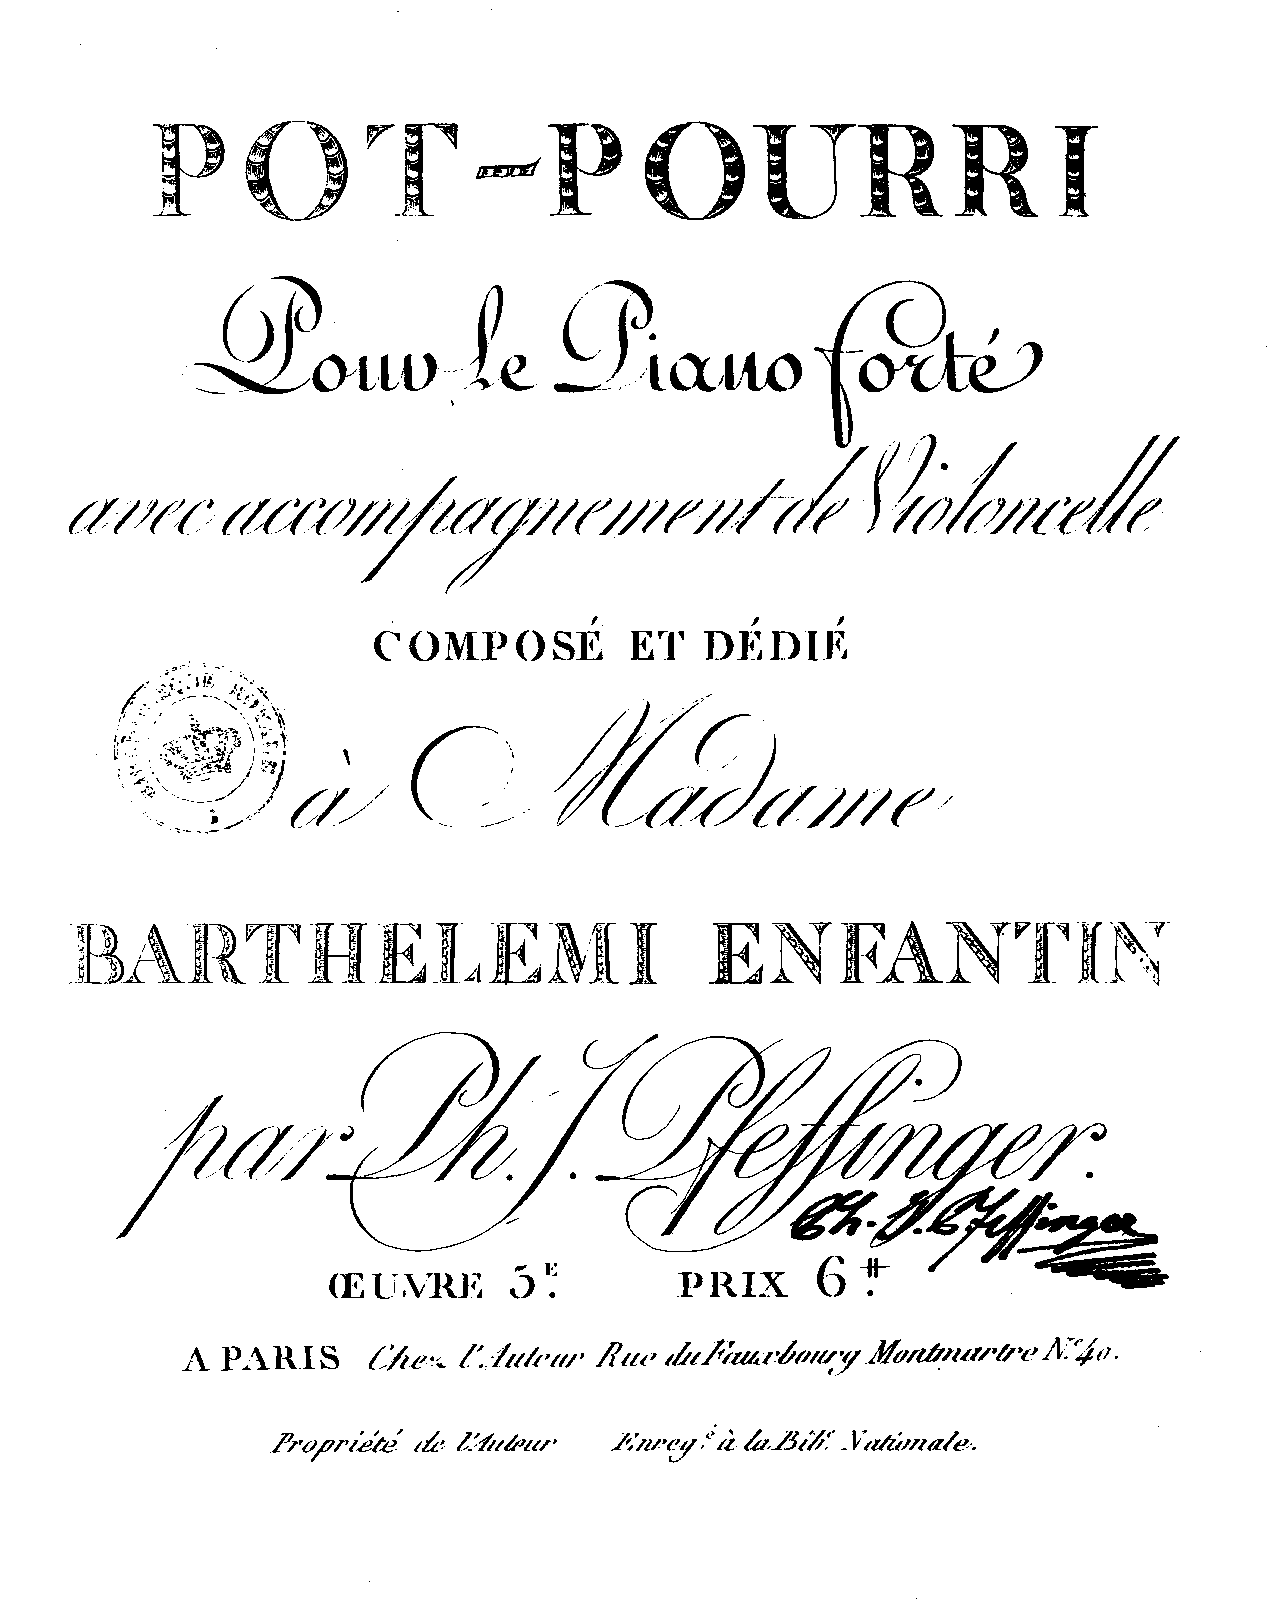 POT-POURRI
Pour le Piano forté
avec accompagnement de Violoncelle
COMPOSÉ ET DÉDIÉ
BIBLIOTHEQUE ROYALE
à Madame
BARTHELEMI ENFANTIN
par Ph. J. Pfeffinger.
Ph. J. Pfeffinger
ŒUVRE 5.E PRIX 6.#
A PARIS Chez l'Auteur Rue du Fauxbourg Montmartre N.º 40.
Propriété de l'Auteur Enreg.é à la Bib.e Nationale.